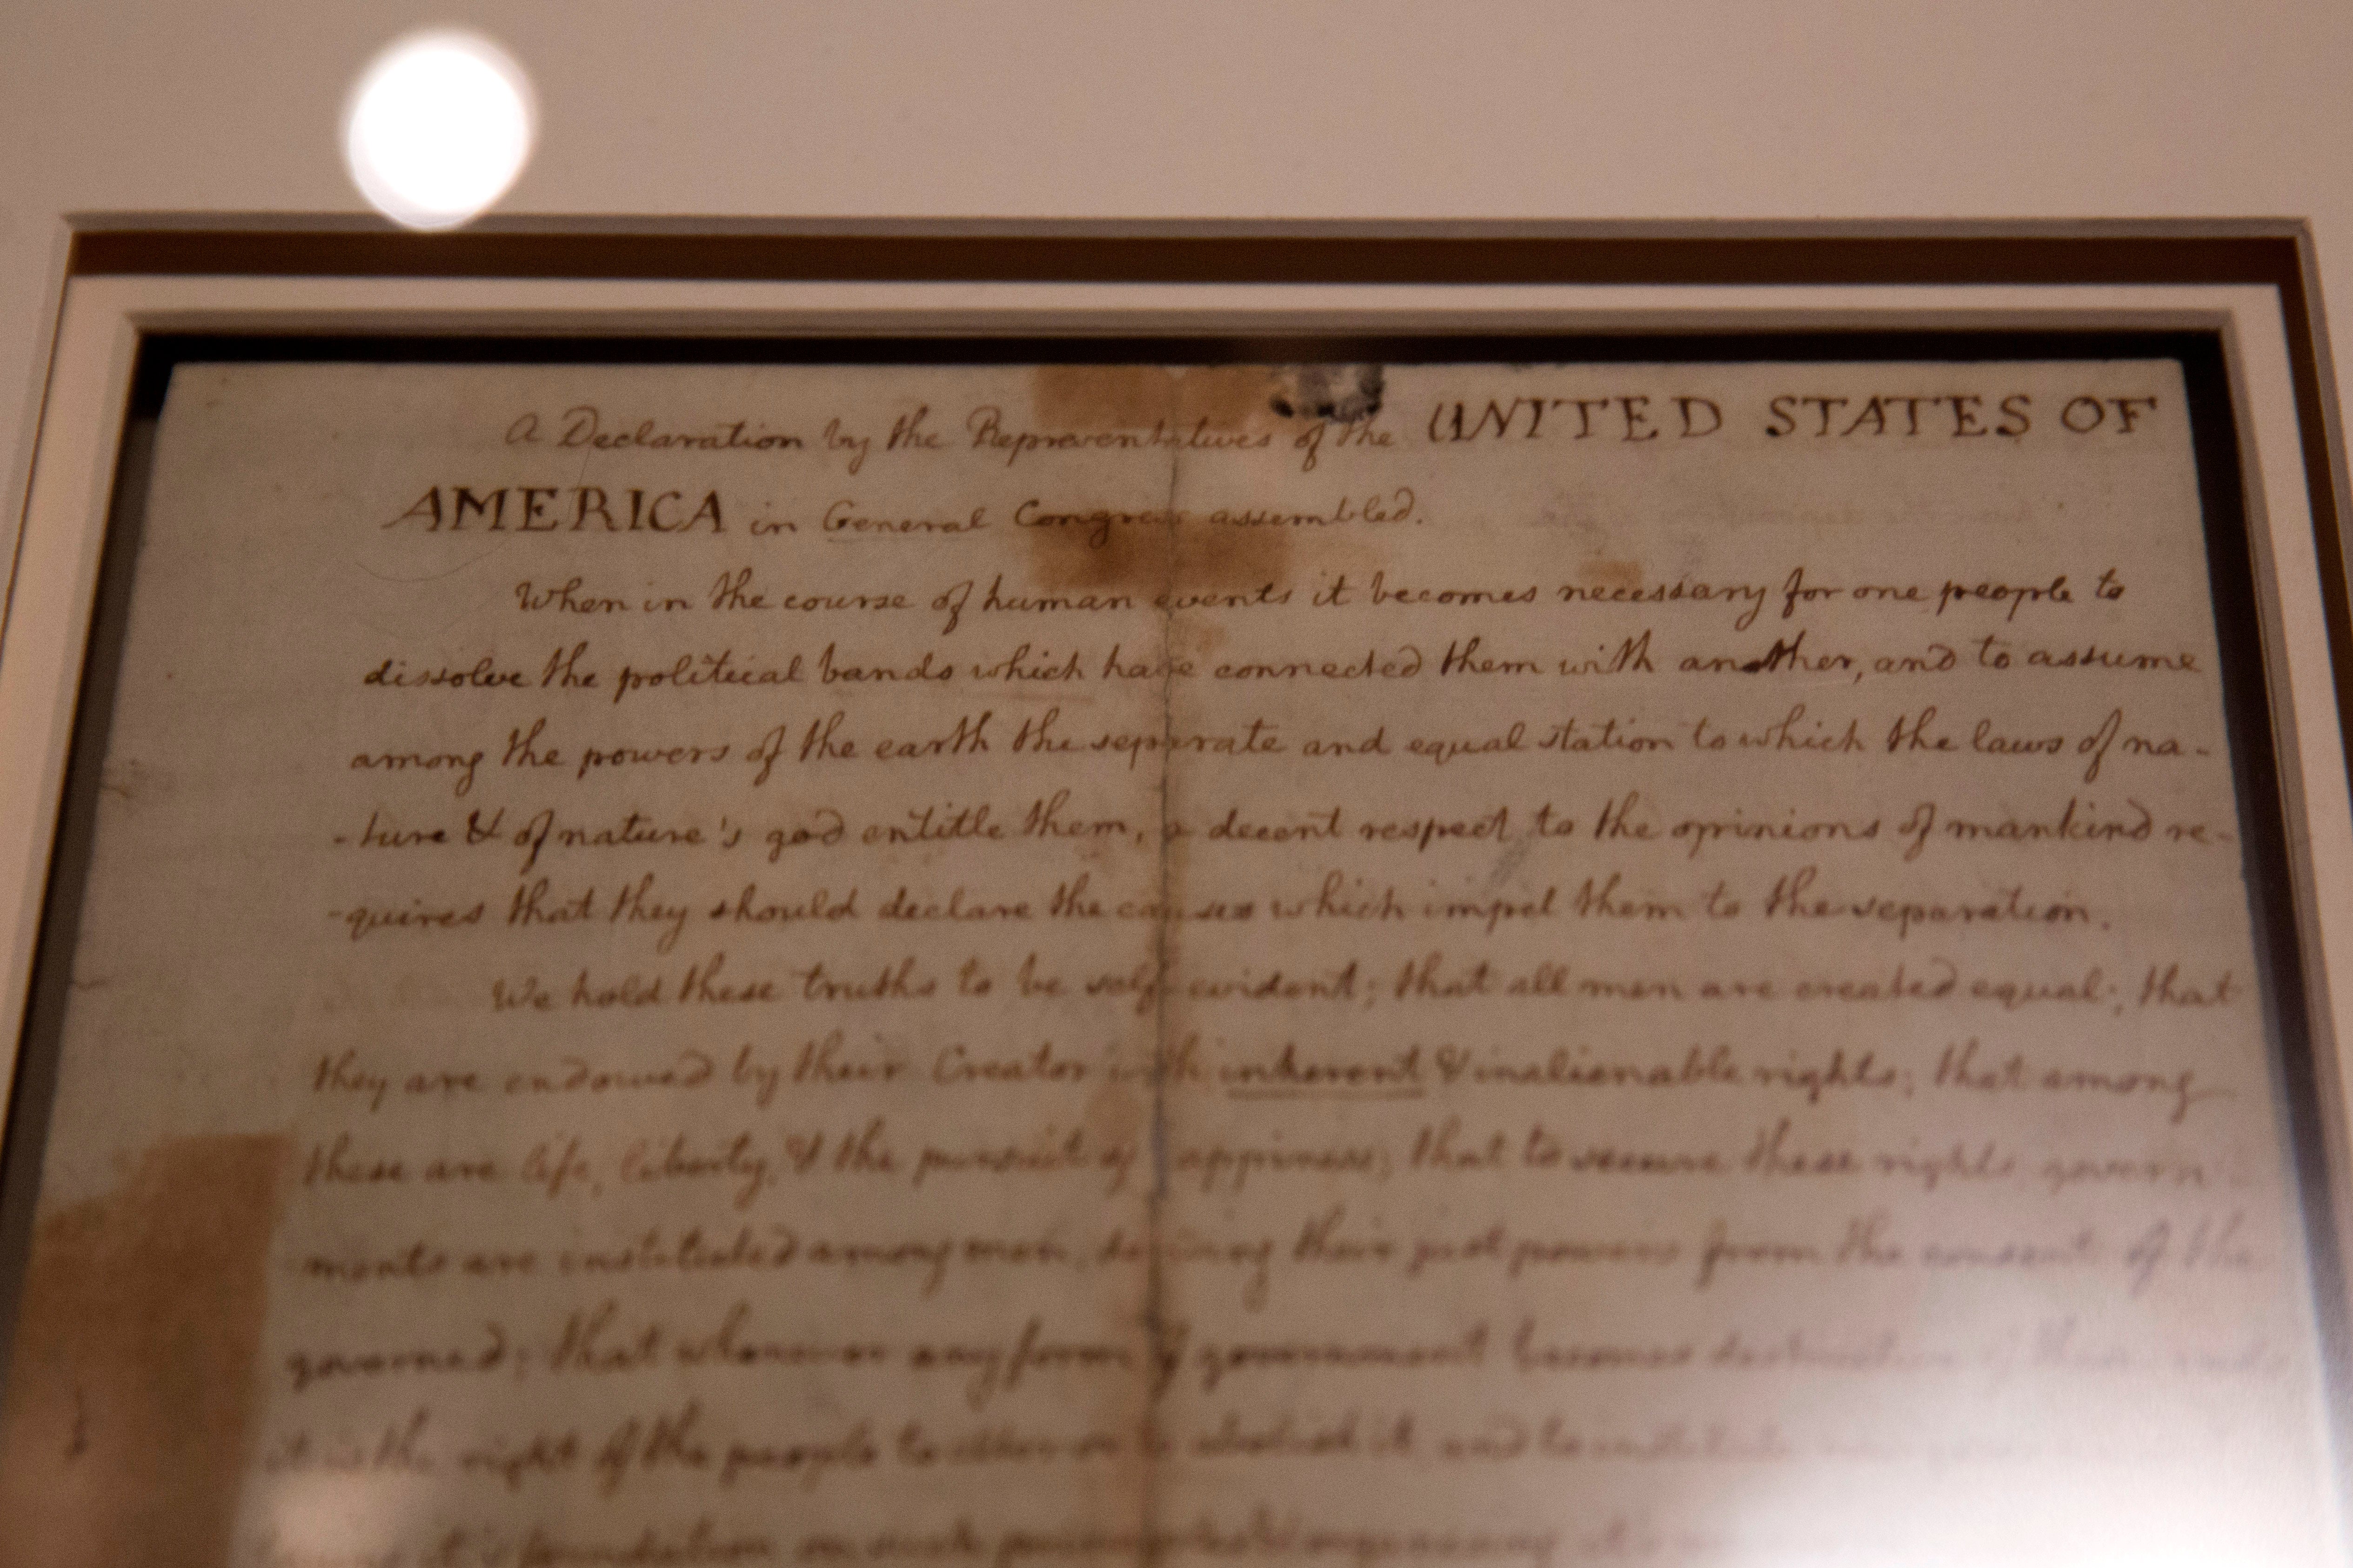 A Declaration by the Representatives of the UNITED STATES OF
AMERICA in General Congress assembled.
When in the course of human events it becomes necessary for one people to
dissolve the political bands which have connected them with another, and to assume
among the powers of the earth the separate and equal station to which the laws of na-
-ture & of nature's god entitle them, a decent respect to the opinions of mankind re-
-quires that they should declare the causes which impel them to the separation.
We hold these truths to be self evident; that all men are created equal; that
they are endowed by their Creator with inherent & inalienable rights; that among
these are life, liberty, & the pursuit of happiness; that to secure these rights, govern-
-ments are instituted among men, deriving their just powers from the consent of the
governed; that whenever any form of government becomes destructive of these ends
it is the right of the people to alter or to abolish it, and to institute
it's foundation on such principles & organising it's